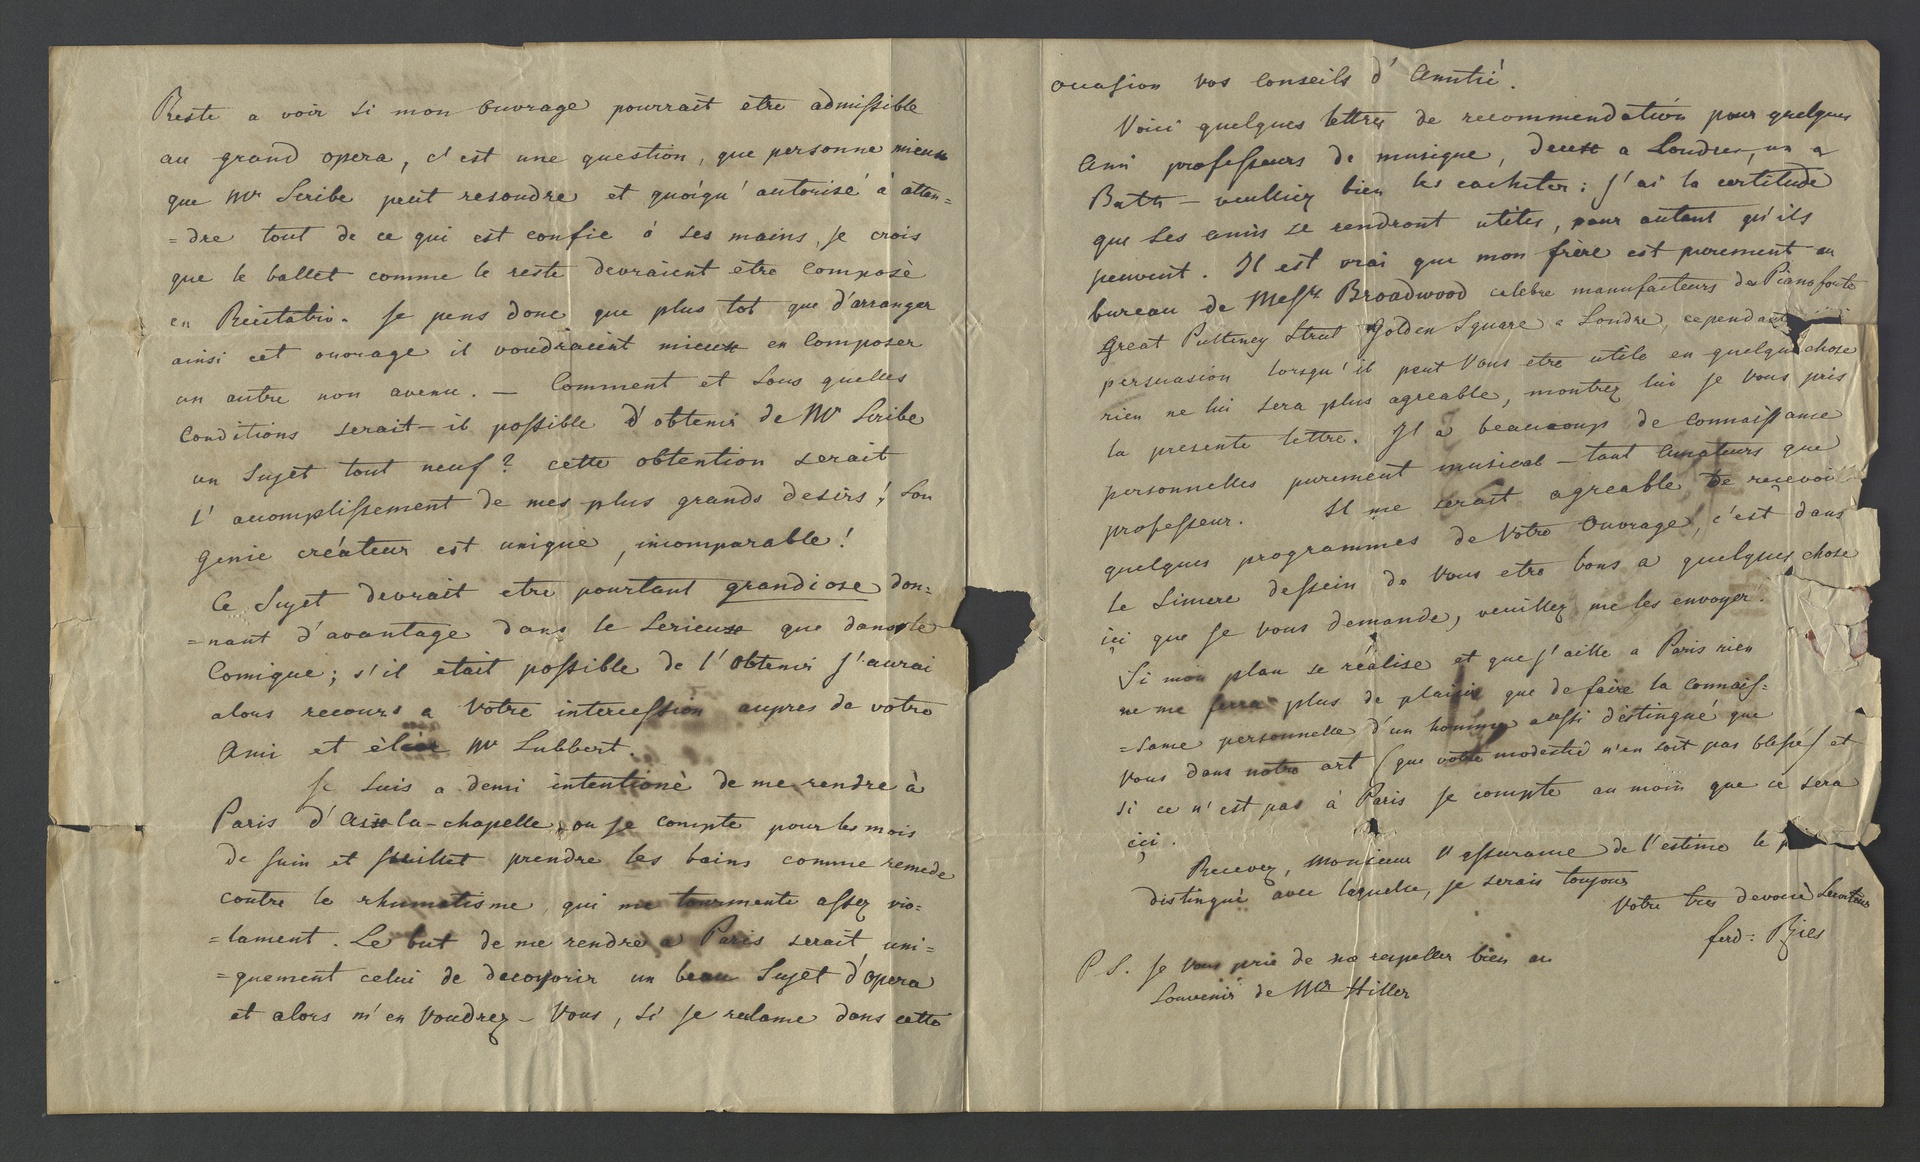 Reste a voir si mon ouvrage pourrait etre admissible
au grand opera, c'est une question, que personne mieux
que Mr Scribe peut resoudre et quoiqu' autorisé à atten=
=dre tout de ce qui est confie à ses mains, je crois
que le ballet comme le reste devraient être composé
en Récitativ. Je pens donc que plus tot que d'arranger
ainsi cet ouvrage il voudraient mieux en composer
un autre non avenu. — Comment et sous quelles
Conditions serait-il possible d'obtenir de Mr Scribe
un Sujet tout neuf? cette obtention serait
l' acomplissement de mes plus grands desirs! Son
Genie créateur est unique, incomparable!
Ce Sujet devrait etre pourtant grandiose don=
=nant d'avantage dans le serieux que dans le
Comique; s'il était possible de l'obtenir j'aurai
alors recours a votre intercession aupres de votre
Ami et Mr Lubbert.
Je suis a demi intentioné de me rendre à
Paris d'Aix la-chapelle, ou je compte pour les mois
de Juin et Juillet prendre les bains comme remede
contre le rhumatisme, qui me tourmente assez vio=
=lament. Le but de me rendre a Paris serait uni=
=quement celui de decouvrir un beau Sujet d'opera
et alors m'en voudrez-vous, si je reclame dans cette
occasion vos conseils d' Amitié.
Voici quelques lettres de recommendation pour quelques
Ami professeurs de musique, deux a Londres, un a
Bath — veulliez bien les cacheter: j'ai la certitude
que ses amis se rendront utiles, pour autant qu'ils
peuvent. Il est vrai que mon frère est purement au
bureau de Messrs Broadwood celebre manufacteurs de Pianoforte
Great Pulteney Street Golden Square a Londre, cependant
persuasion lorsqu'il peut vous etre utile en quelque chose
rien ne lui sera plus agreable, montrez lui je vous pris
la presente lettre. Il a beaucoup de connaissance
personnelles purement musical — tant Amateurs que
professeur. Il me serait agreable de recevoir
quelques programmes de votre Ouvrage, c'est dans
le Sincere dessein de vous etre bons a quelques chose
içi que je vous demande, veuillez me les envoyer.
Si mon plan se réalise et que j'aille a Paris rien
ne me ferra plus de plaisir que de faire la connais=
=sance personnelle d'un homme aussi distingué que
vous dans notre art (que votre modestie n'en soit pas blessé) et
si ce n'est pas à Paris je compte au moin que ce sera
içi.
Recevez, Monsieur l'assurance de l'estime le
distingué avec laquelle, je serais toujours
Votre tres devoué Serviteur
ferd: Ries
P.S. Je vous prie de me rapeller bien au
Souvenir de Mr Hiller